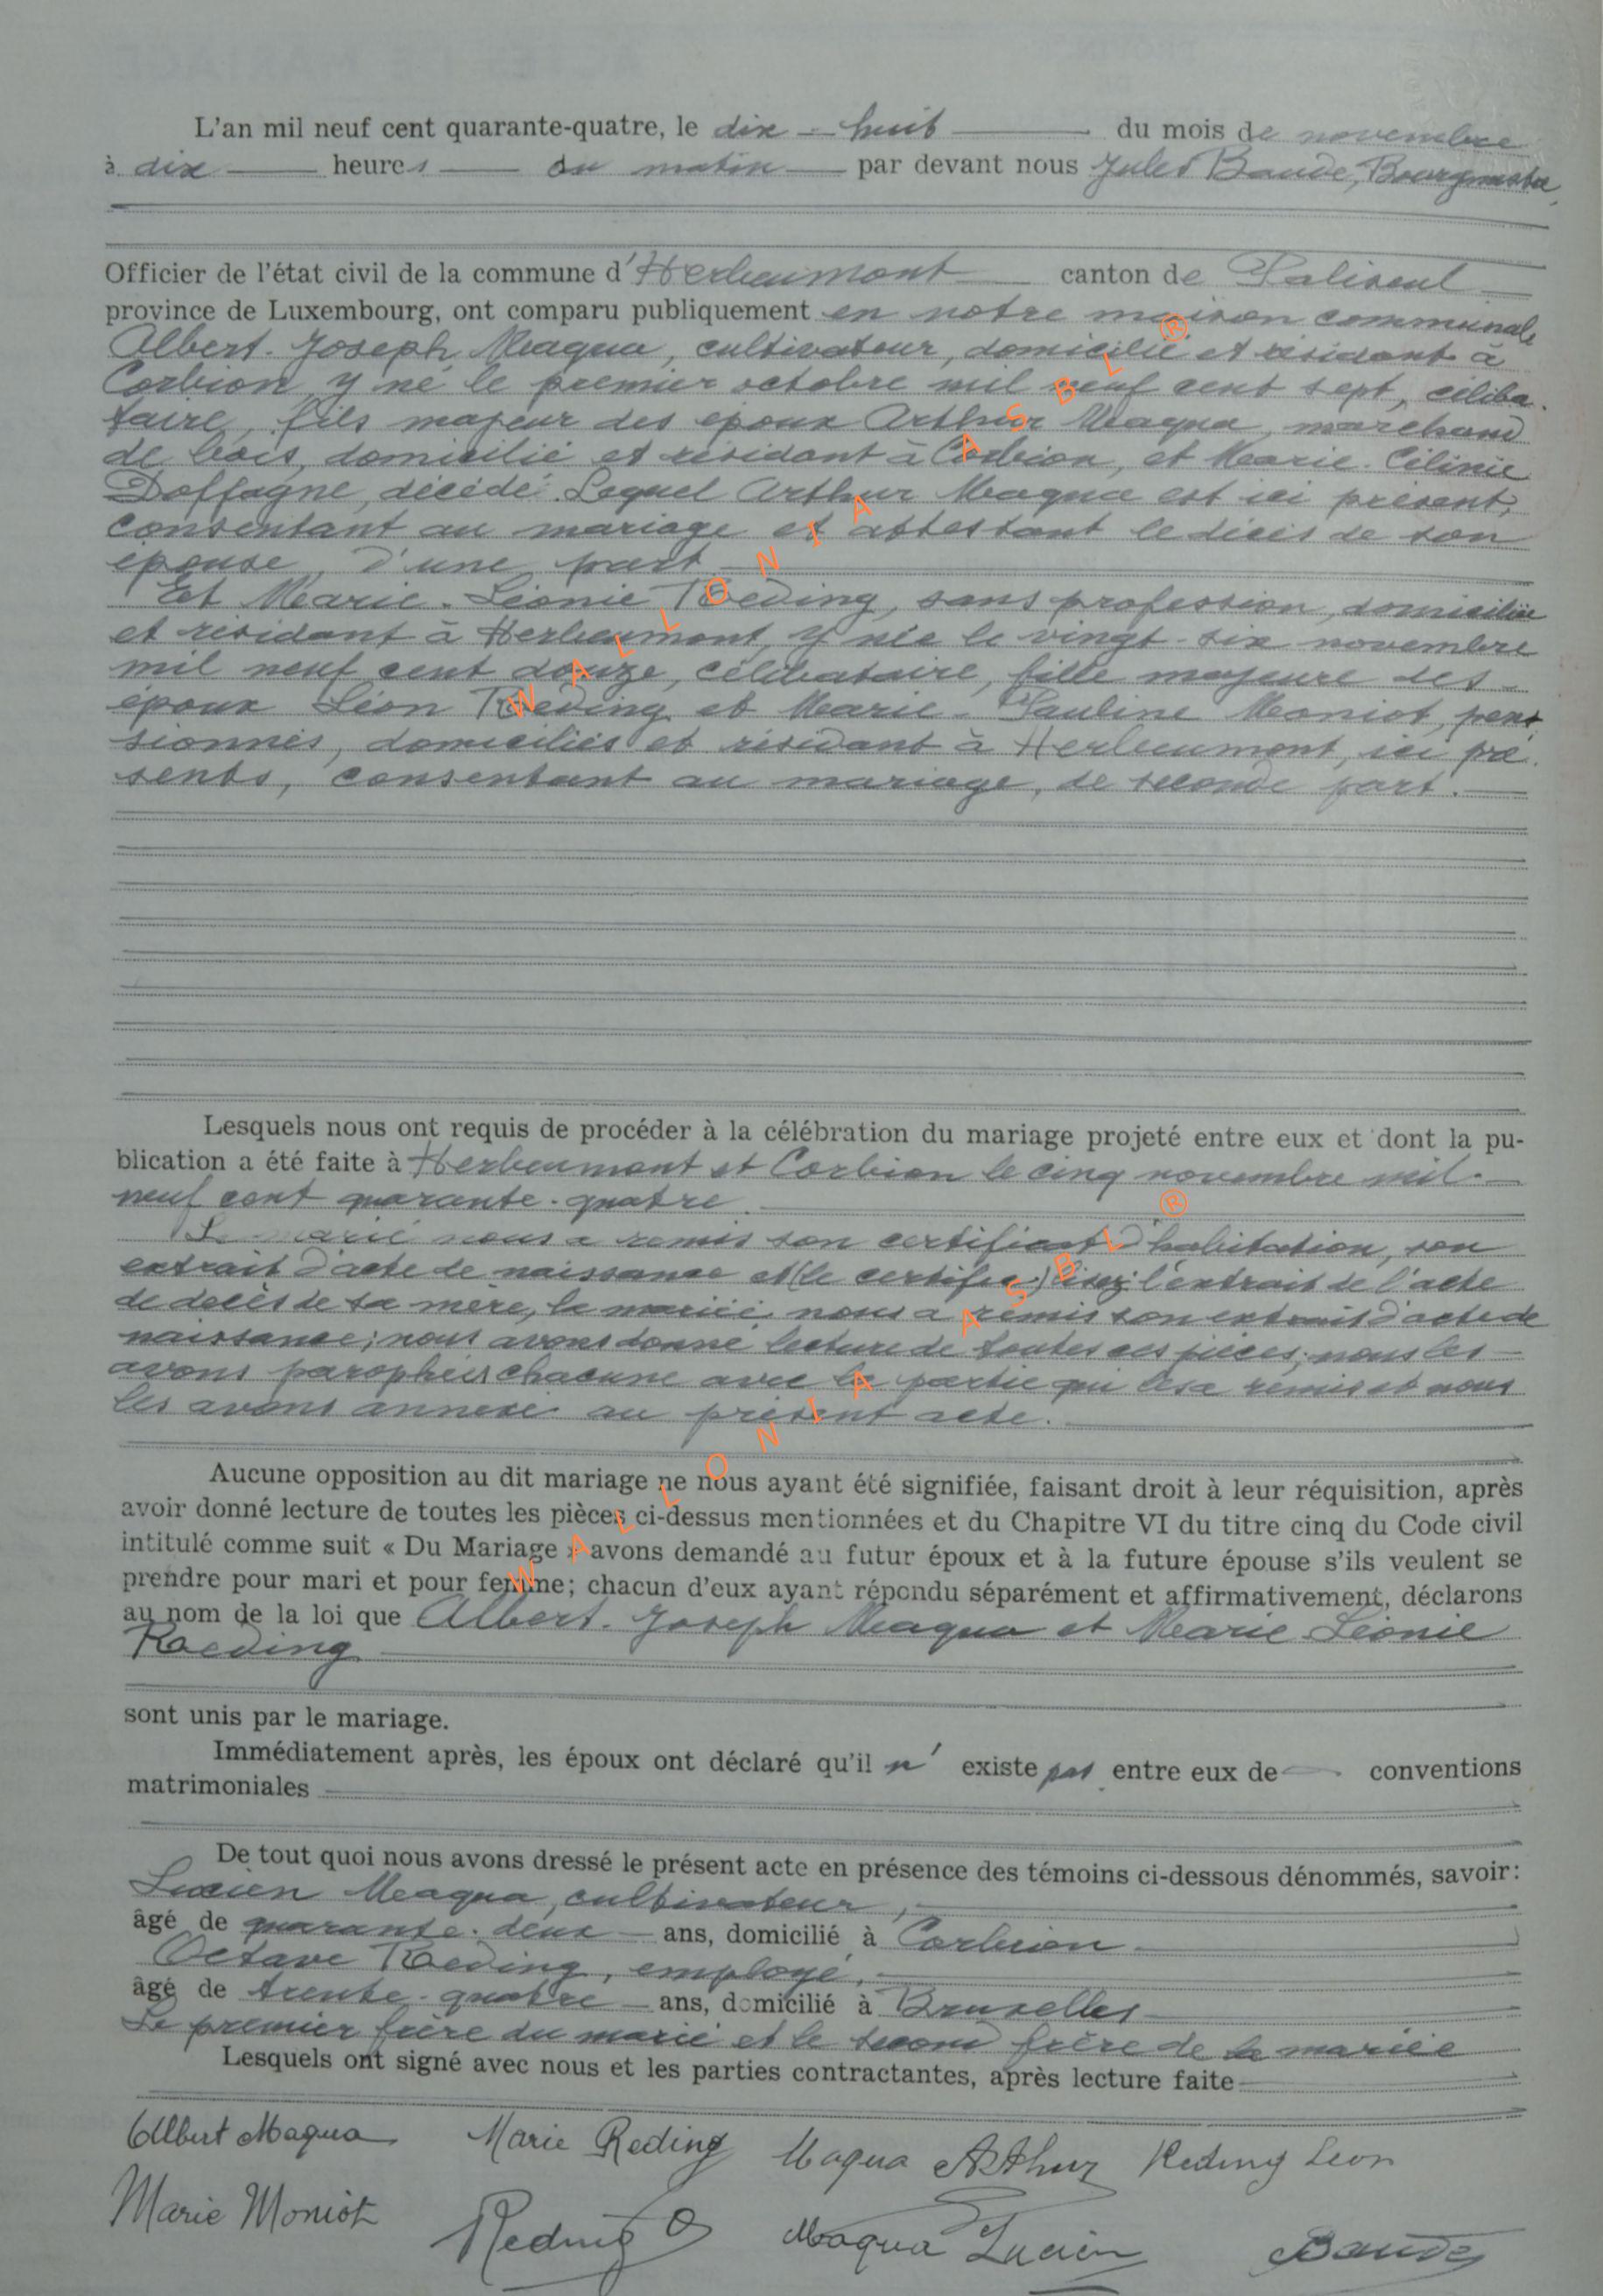 L'an mil neuf cent quarante-quatre, le dix-huit du mois de novembre
à dix heures du matin par devant nous Jules Baude, Bourgmestre,
Officier de l'état civil de la commune d'Herbeumont canton de Paliseul
province de Luxembourg, ont comparu publiquement en notre maison communale
Albert-Joseph Maqua, cultivateur, domicilié et résidant à
Corbion, y né le premier octobre mil neuf cent sept, céliba-
taire, fils majeur des époux Arthur Maqua, marchand
de bois, domicilié et résidant à Corbion, et Marie-Célinie
Doffagne, décédé. Lequel Arthur Maqua est ici présent,
consentant au mariage et attestant le décès de son
épouse, d'une part.
Et Marie-Léonie Roeding, sans profession, domiciliée
et résidant à Herbeumont, y née le vingt-six novembre
mil neuf cent douze, célibataire, fille majeure des
époux Léon Roeding et Marie-Pauline Moniot, pen-
sionnés, domiciliés et résidant à Herbeumont, ici pré-
sents, consentant au mariage, de seconde part.
Lesquels nous ont requis de procéder à la célébration du mariage projeté entre eux et dont la pu-
blication a été faite à Herbeumont et Corbion le cinq novembre mil-
neuf cent quarante-quatre.
Le marié nous a remis son certificat d'habitation, son
extrait d'acte de naissance et (le certific) lisez: l'extrait de l'acte
de decès de sa mère, la mariée nous a remis son extrait d'acte de
naissance; nous avons donné lecture de toutes ces pièces; nous les
avons paraphées chacune avec la partie qui les a remis et nous
les avons annexé au présent acte.
Aucune opposition au dit mariage ne nous ayant été signifiée, faisant droit à leur réquisition, après
avoir donné lecture de toutes les pièces ci-dessus mentionnées et du Chapitre VI du titre cinq du Code civil
intitulé comme suit « Du Mariage » avons demandé au futur époux et à la future épouse s'ils veulent se
prendre pour mari et pour femme; chacun d'eux ayant répondu séparément et affirmativement, déclarons
au nom de la loi que Albert-Joseph Maqua et Marie Léonie
Roeding
sont unis par le mariage.
Immédiatement après, les époux ont déclaré qu'il n' existe pas entre eux de conventions
matrimoniales
De tout quoi nous avons dressé le présent acte en présence des témoins ci-dessous dénommés, savoir:
Lucien Maqua, cultivateur,
âgé de quarante-deux ans, domicilié à Corbion
Octave Roeding, employé,
âgé de trente-quatre ans, domicilié à Bruxelles
Le premier frère du marié et le second frère de la mariée
Lesquels ont signé avec nous et les parties contractantes, après lecture faite
Albert Maqua Marie Reding Maqua Arthur Reding Leon
Marie Moniot Reding O Maqua Lucien Baude
WALLONIA ASBL ®
WALLONIA ASBL ®